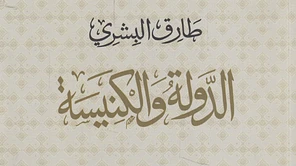 طَارِق البِشْرِي
الدَّولَة وَالكَنِيسَة